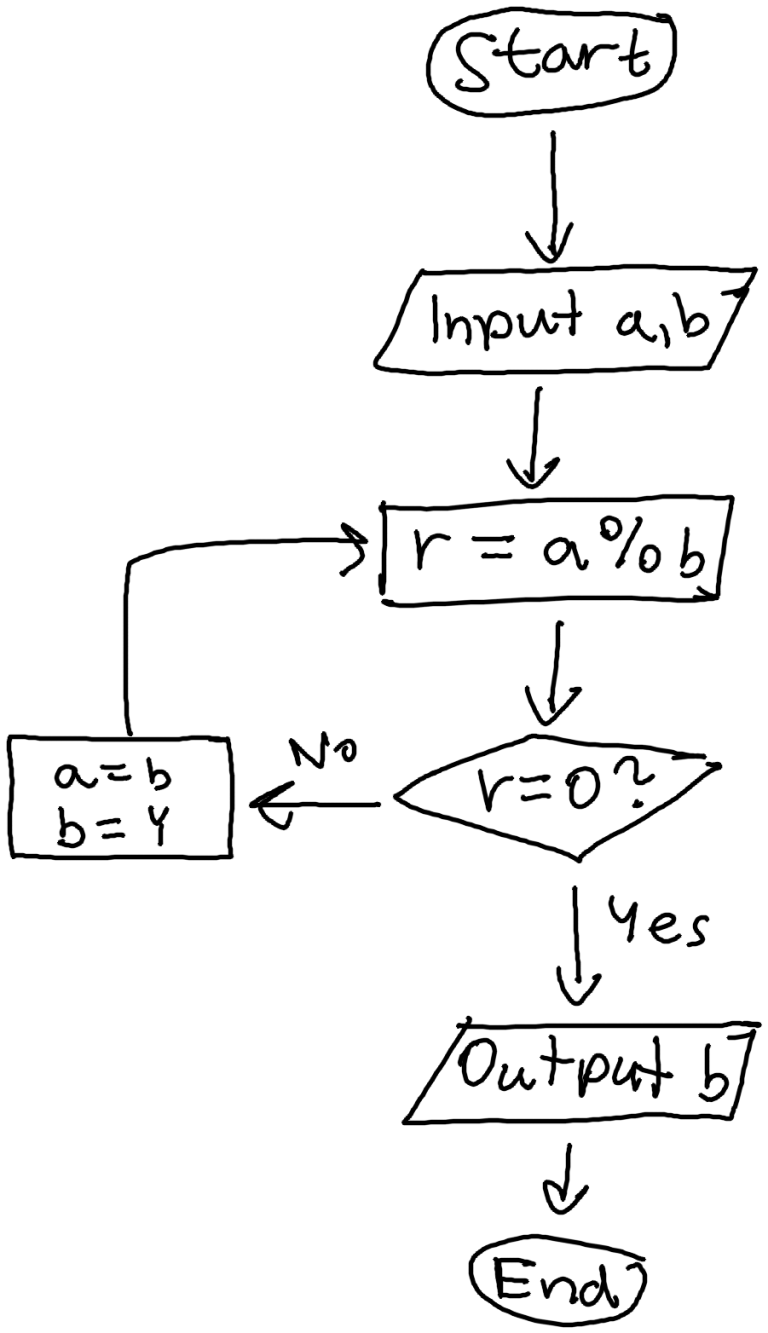 Start
Input a,b
r = a%b
r=0?
No
a=b
b=Y
Yes
Output b
End